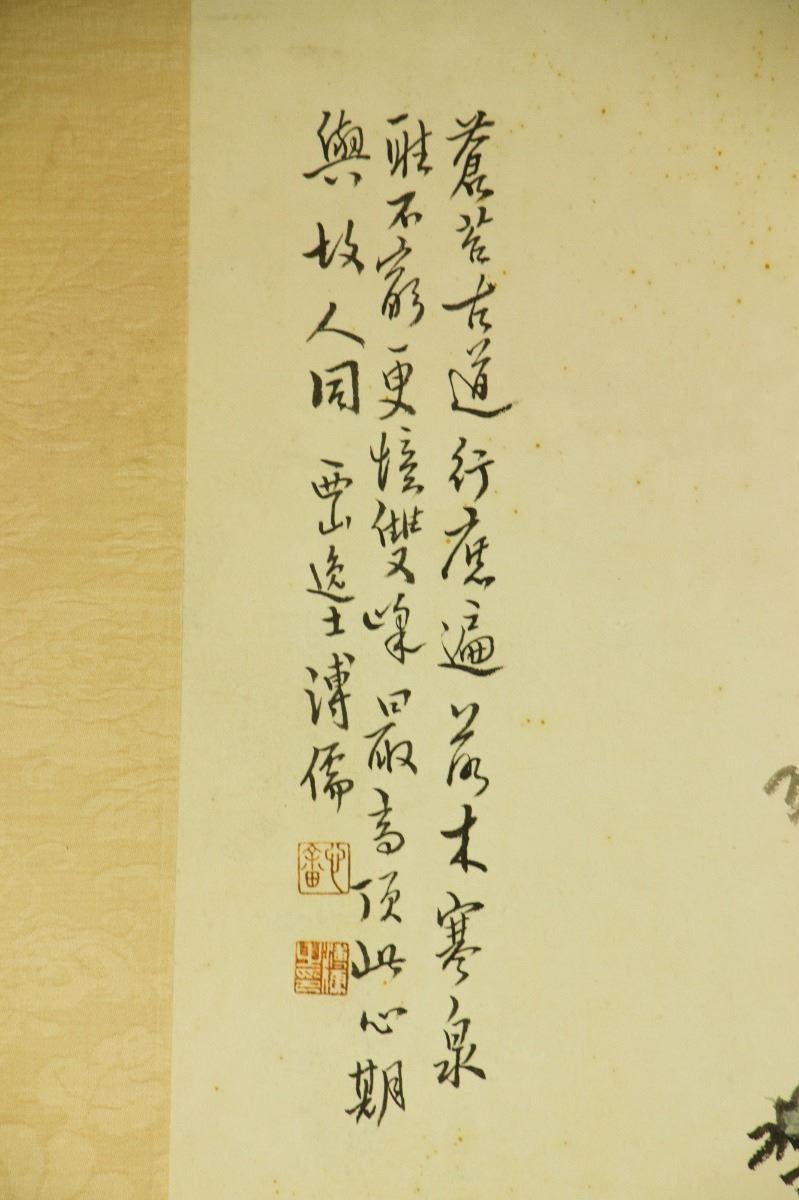 蒼苔古道行應遍落木寒泉
聽不窮更憶雙峰最高頂此心期
與故人同 西山逸士溥儒
心畬
溥儒之印